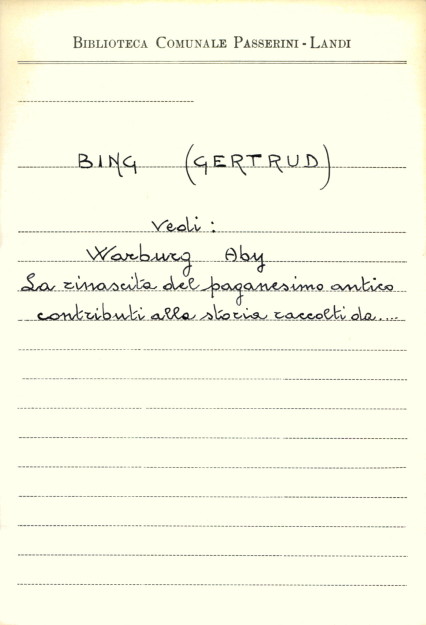 BIBLIOTECA COMUNALE PASSERINI - LANDI
BING (GERTRUD)
Vedi :
Warburg Aby
La rinascita del paganesimo antico
contributi alla storia raccolti da....